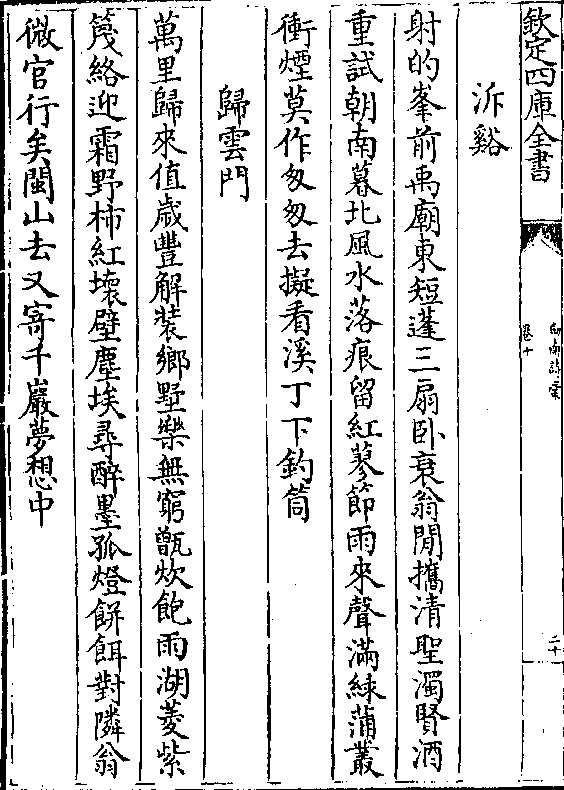 欽定四庫全書
劍南詩槀
卷十
二十
泝谿
射的峯前禹廟東短蓬三扇卧衰翁閒攜清聖濁賢酒
重試朝南暮北風水落痕留紅蓼節雨來聲滿綠蒲叢
衝煙莫作匆匆去擬看溪丁下釣筒
歸雲門
萬里歸來值歲豐解裝鄉墅樂無窮甑炊飽雨湖菱紫
篾絡迎霜野柿紅壊壁塵埃尋醉墨孤燈餅餌對隣翁
微官行矣閩山去又寄千巖夢想中